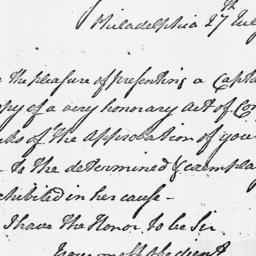 Philadelphia 27th July
the pleasure of presenting a Capta
opy of a very honorary Act of Con
ks of the Approbation of you
to the determined & exempla
xhibited in her cause -
I have the Honor to be Sir
Your most Obedient